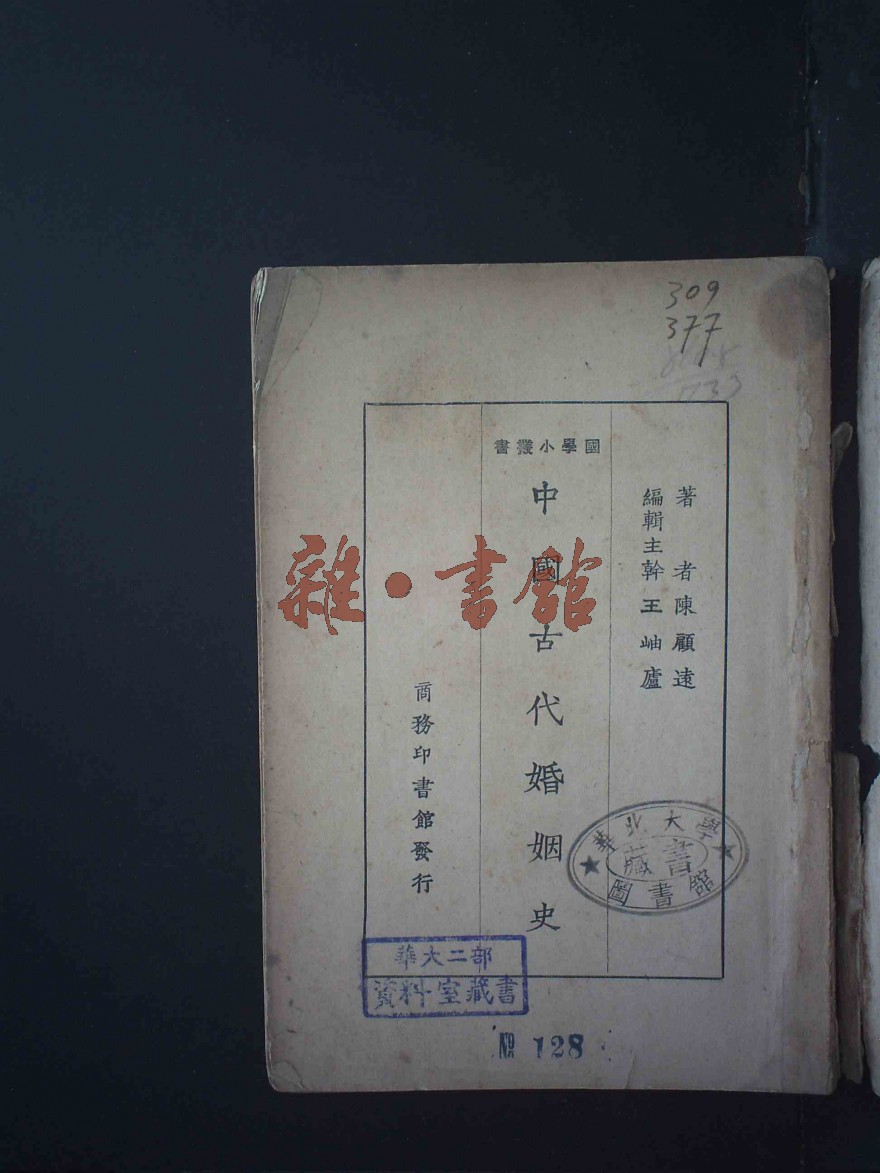 309
377
著者陳顧遠
編輯主幹王岫廬
國學小叢書
中國古代婚姻史
商務印書館發行
雜·書館
華北大學
藏書
圖書館
華大二部
資料室藏書
№ 128